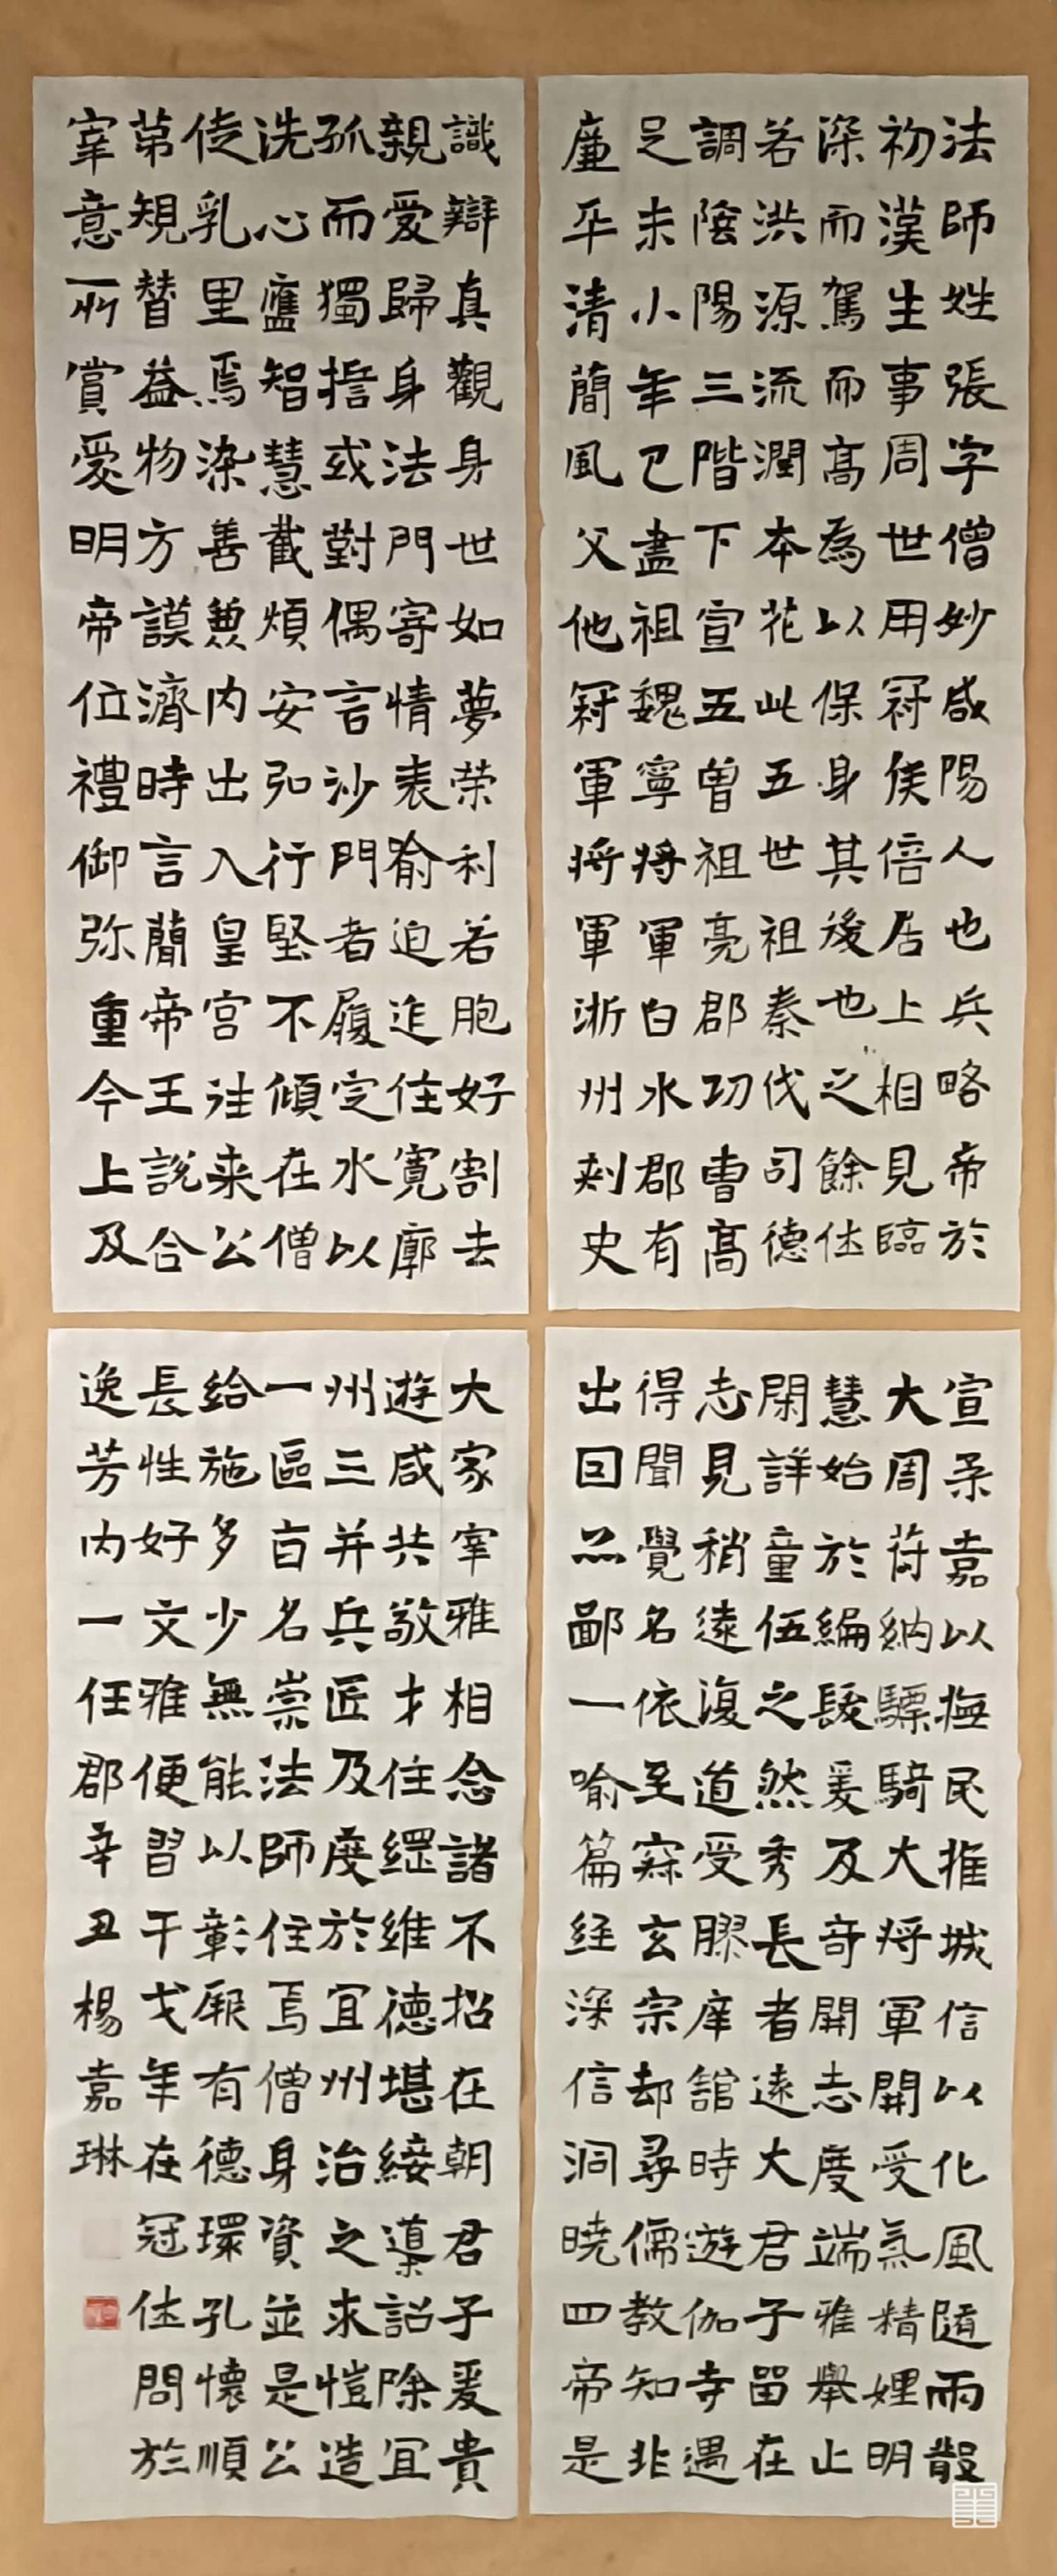 法師姓張字僧妙咸陽人也兵略帝於
初漢生事周世用冠侯倍居上相見臨
深而駕而高為以保身其後也之餘佐
若洪源流潤本花此五世祖秦伐司德
調陰陽三階下宣五曾祖亮郡功曹高
足未小年已盡祖魏寧將軍白水郡有
廉平清簡風父他冠軍將軍淅州刺史
宣柔嘉以撫民推城信以化風隨雨散
大周苻納驃騎大將軍開受氣精娌明
慧始於編髮爰及奇開志度端雅舉止
閑詳童伍之然秀長者遠大君子留在
志見稍遠復道受膠庠館時遊伽寺遇
得聞覺名依至寂玄宗却尋儒教知非
出囙鄙一喻篇經深信洞曉四帝是
識辯真觀身世如夢榮利若胞好割去
親愛歸身法門寄情表喻迫迮住寬廓
孤而獨擔或對偶言沙門者履定水以
洗心智慧截煩安弘行堅不傾在僧
徒乳里焉染善兼內出入皇宮往來公
第規替益物方謨濟時言蘭帝王說合
宰意所賞愛明帝位禮御弥重今上及
大家宰雅相念諸不招在朝君子爰貴
遊咸共敬才住維德堪綏導詔除宜
州三并兵匠及度於宜州治之求愷造
一區百名崇法師住焉僧身資並是公
給施多少無能以彰厥有德環孔懷順
長性好文雅便習干戈年在冠佐問於
逸芳內一任郡辛丑楊嘉琳